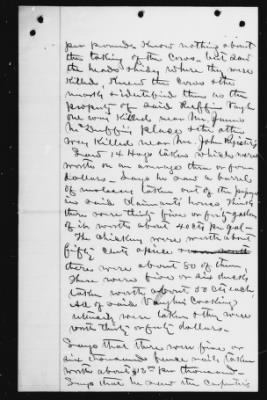 per pounds Know nothing about
the taking of the Cows, but saw
the heads & hides where they were
Killed, Knew the Cows & the
marks & identified them as the
property of said Ruffin Vaugh
one was Killed near Mr. James
McDuffie's place & the other
was Killed near Mr. John Register's
Saw 14 Hogs taken which were
worth on an average then of four
dollars - Says he saw a barrel
of molasses taken out of the
in said claimants house. Thinks
there were thirty five or forty gallons
of it worth about 40 cts per gal -
The chickens were worth about
fifty cents apiece
there were about 50 of them
There were five or six ducks
taken worth about 50 cts each,
All of said Vaughs Cooking
utensils were taken & they were
worth thirty or forty dollars -
Says that there were five or
six thousands fence rails taken
worth about per thousand -
Says that he knew the Carpenter's